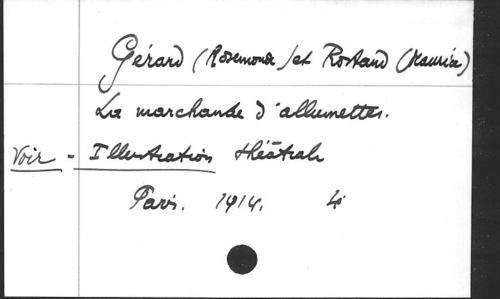 Gérard (Rosemonde) et Rostand (Maurice)
La marchande d'allumettes.
Voir - Illustration théâtrale
Paris. 1914. 4°